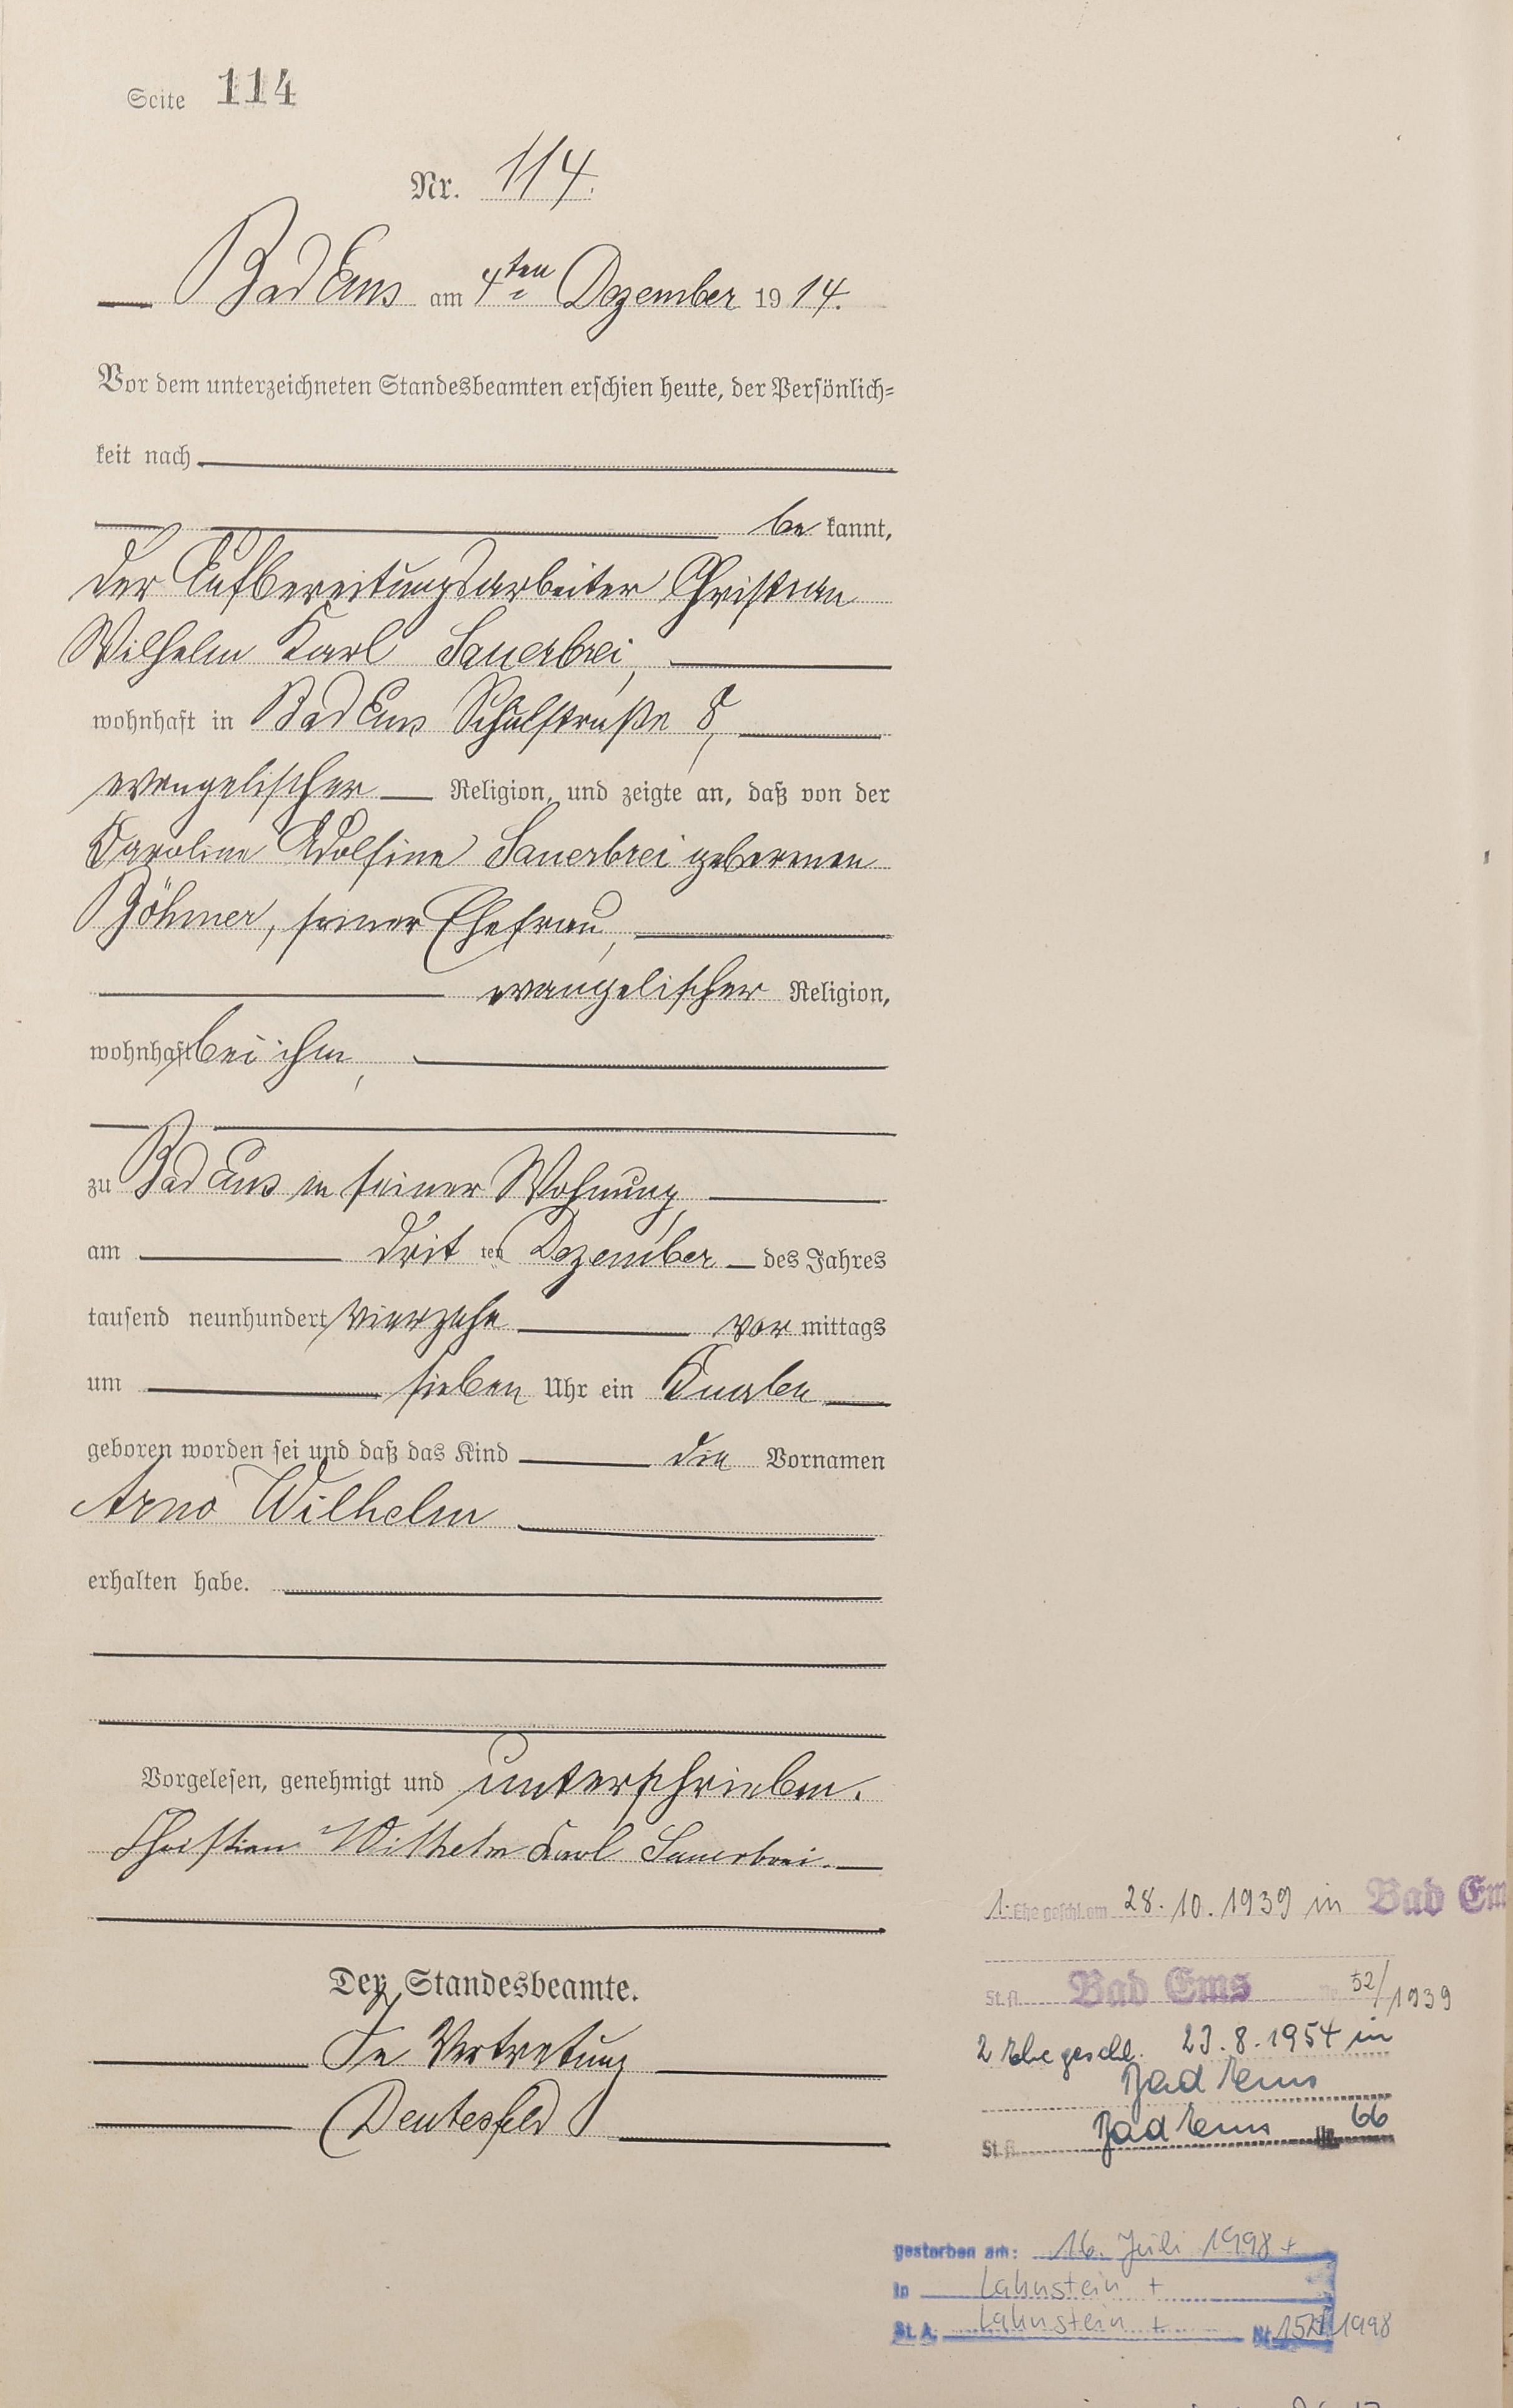 Seite 114
Nr. 114.
Bad Ems am 4ten Dezember 1914.
Vor dem unterzeichneten Standesbeamten erschien heute, der Persönlich-
keit nach
be kannt,
der Aufbereitungsarbeiter Christian
Wilhelm Karl Sauerbrei,
wohnhaft in Bad Ems Schulstraße 8,
evangelischer Religion, und zeigte an, daß von der
Karoline Adolfine Sauerbrei geborenen
Böhmer, seiner Ehefrau,
evangelischer Religion,
wohnhaft bei ihm,
zu Bad Ems in seiner Wohnung,
am dritten Dezember des Jahres
tausend neunhundert vierzehn vor mittags
um sieben Uhr ein Knabe
geboren worden sei und daß das Kind die Vornamen
Arno Wilhelm
erhalten habe.
Vorgelesen, genehmigt und unterschrieben.
Christian Wilhelm Karl Sauerbrei.
Der Standesbeamte.
In Vertretung
Deutesfeld
1. Ehe geschl. am 28.10.1939 in Bad Em
St.A. Bad Ems Nr. 52/1939
2 Ehe geschl. 23.8.1954 in
Bad Ems
St.A. Bad Ems Nr. 66
gestorben am: 16. Juli 1998 +
in Lahnstein +
St. A. Lahnstein + Nr. /1998